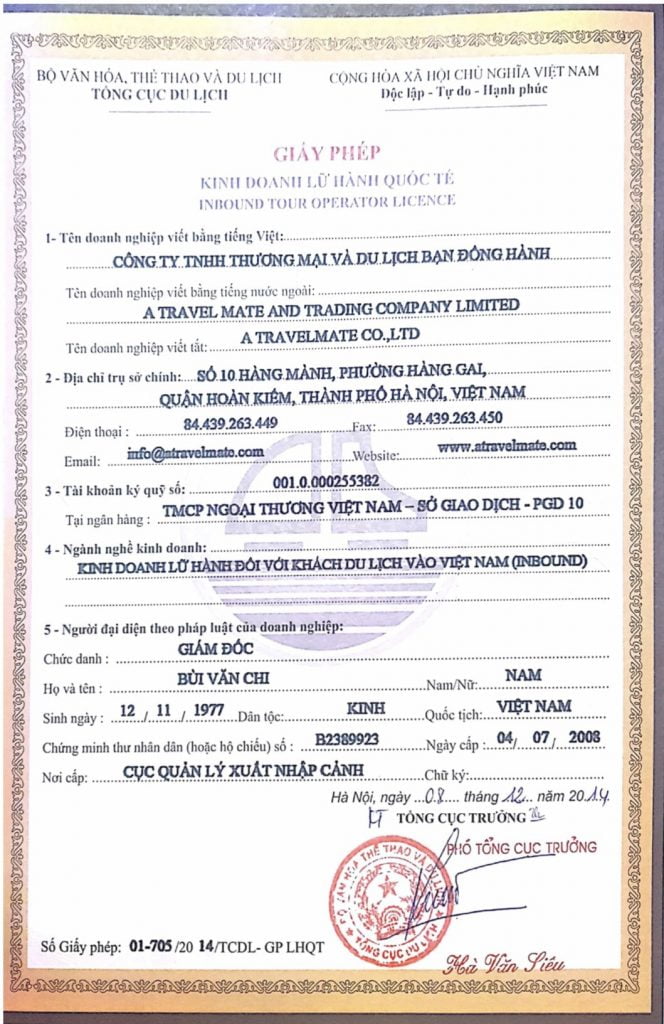 BỘ VĂN HÓA, THỂ THAO VÀ DU LỊCH
TỔNG CỤC DU LỊCH
CỘNG HÒA XÃ HỘI CHỦ NGHĨA VIỆT NAM
Độc lập - Tự do - Hạnh phúc
GIẤY PHÉP
KINH DOANH LỮ HÀNH QUỐC TẾ
INBOUND TOUR OPERATOR LICENCE
1- Tên doanh nghiệp viết bằng tiếng Việt:
CÔNG TY TNHH THƯƠNG MẠI VÀ DU LỊCH BẠN ĐỒNG HÀNH
Tên doanh nghiệp viết bằng tiếng nước ngoài:
A TRAVEL MATE AND TRADING COMPANY LIMITED
Tên doanh nghiệp viết tắt: A TRAVELMATE CO.,LTD
2 - Địa chỉ trụ sở chính: SỐ 10 HÀNG MÀNH, PHƯỜNG HÀNG GAI,
QUẬN HOÀN KIẾM, THÀNH PHỐ HÀ NỘI, VIỆT NAM
Điện thoại : 84.439.263.449 Fax: 84.439.263.450
Email: info@atravelmate.com Website: www.atravelmate.com
3 - Tài khoản ký quỹ số: 001.0.000255382
Tại ngân hàng : TMCP NGOẠI THƯƠNG VIỆT NAM – SỞ GIAO DỊCH - PGD 10
4 - Ngành nghề kinh doanh:
KINH DOANH LỮ HÀNH ĐỐI VỚI KHÁCH DU LỊCH VÀO VIỆT NAM (INBOUND)
5 - Người đại diện theo pháp luật của doanh nghiệp:
Chức danh : GIÁM ĐỐC
Họ và tên : BÙI VĂN CHI Nam/Nữ: NAM
Sinh ngày : 12 / 11 / 1977 Dân tộc: KINH Quốc tịch: VIỆT NAM
Chứng minh thư nhân dân (hoặc hộ chiếu) số : B2389923 Ngày cấp : 04/ 07 / 2008
Nơi cấp: CỤC QUẢN LÝ XUẤT NHẬP CẢNH Chữ ký:
Hà Nội, ngày 08 tháng 12 năm 2014
KT TỔNG CỤC TRƯỞNG
PHÓ TỔNG CỤC TRƯỞNG
BỘ VĂN HÓA THỂ THAO VÀ DU LỊCH
TỔNG CỤC DU LỊCH
Số Giấy phép: 01-705/20 14/TCDL- GP LHQT
Hà Văn Siêu